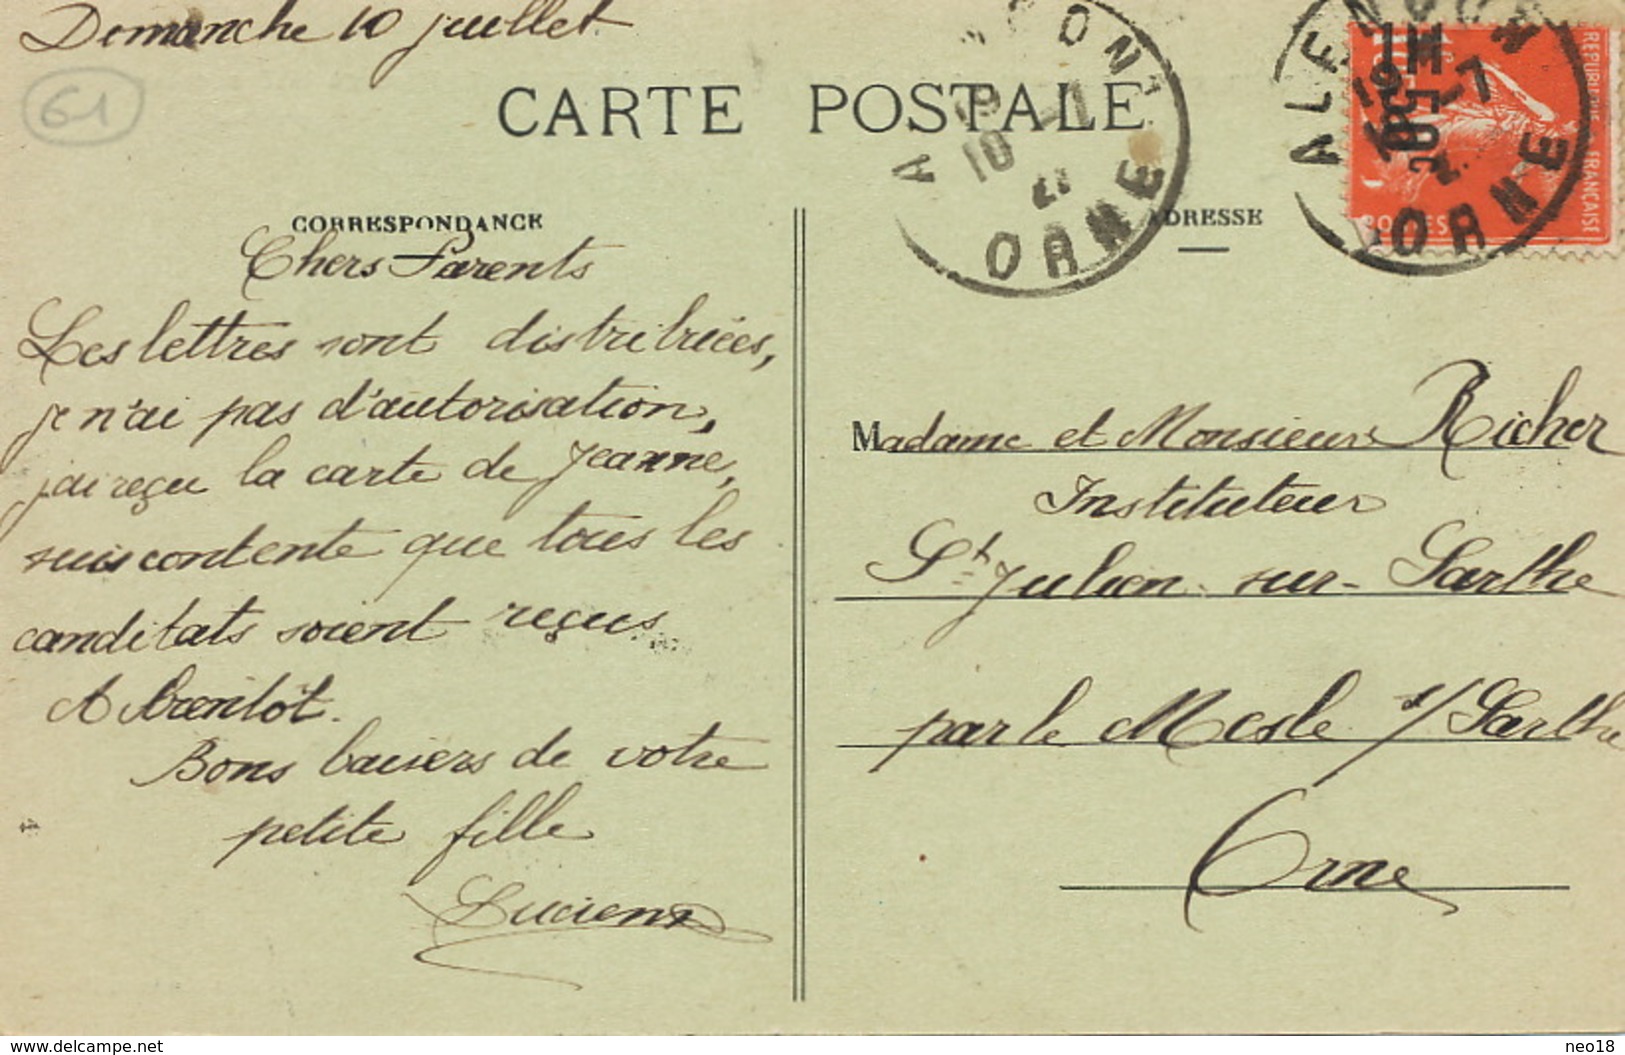 Dimanche 10 juillet
61
CARTE POSTALE
CORRESPONDANCE
Chers Parents
Les lettres sont distribuées,
je n'ai pas d'autorisation,
j'ai reçu la carte de Jeanne,
suis contente que tous les
canditats soient reçus
A bientôt.
Bons baisers de votre
petite fille
Lucienne
ALENCON
ORNE
10
ADRESSE
ALENCON
ORNE
REPUBLIQUE FRANÇAISE
POSTES
Madame et Monsieur Richer
Instituteur
St Julien-sur-Sarthe
par le Mesle s/Sarthe
Orne
www.delcampe.net
neo18